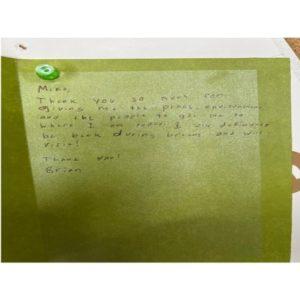 Mike,
Thank you so much for
giving me the place, environment
and the people to get me to
where I am today! I will definitely
be back during breaks and will
visit!
Thank you!
Brian